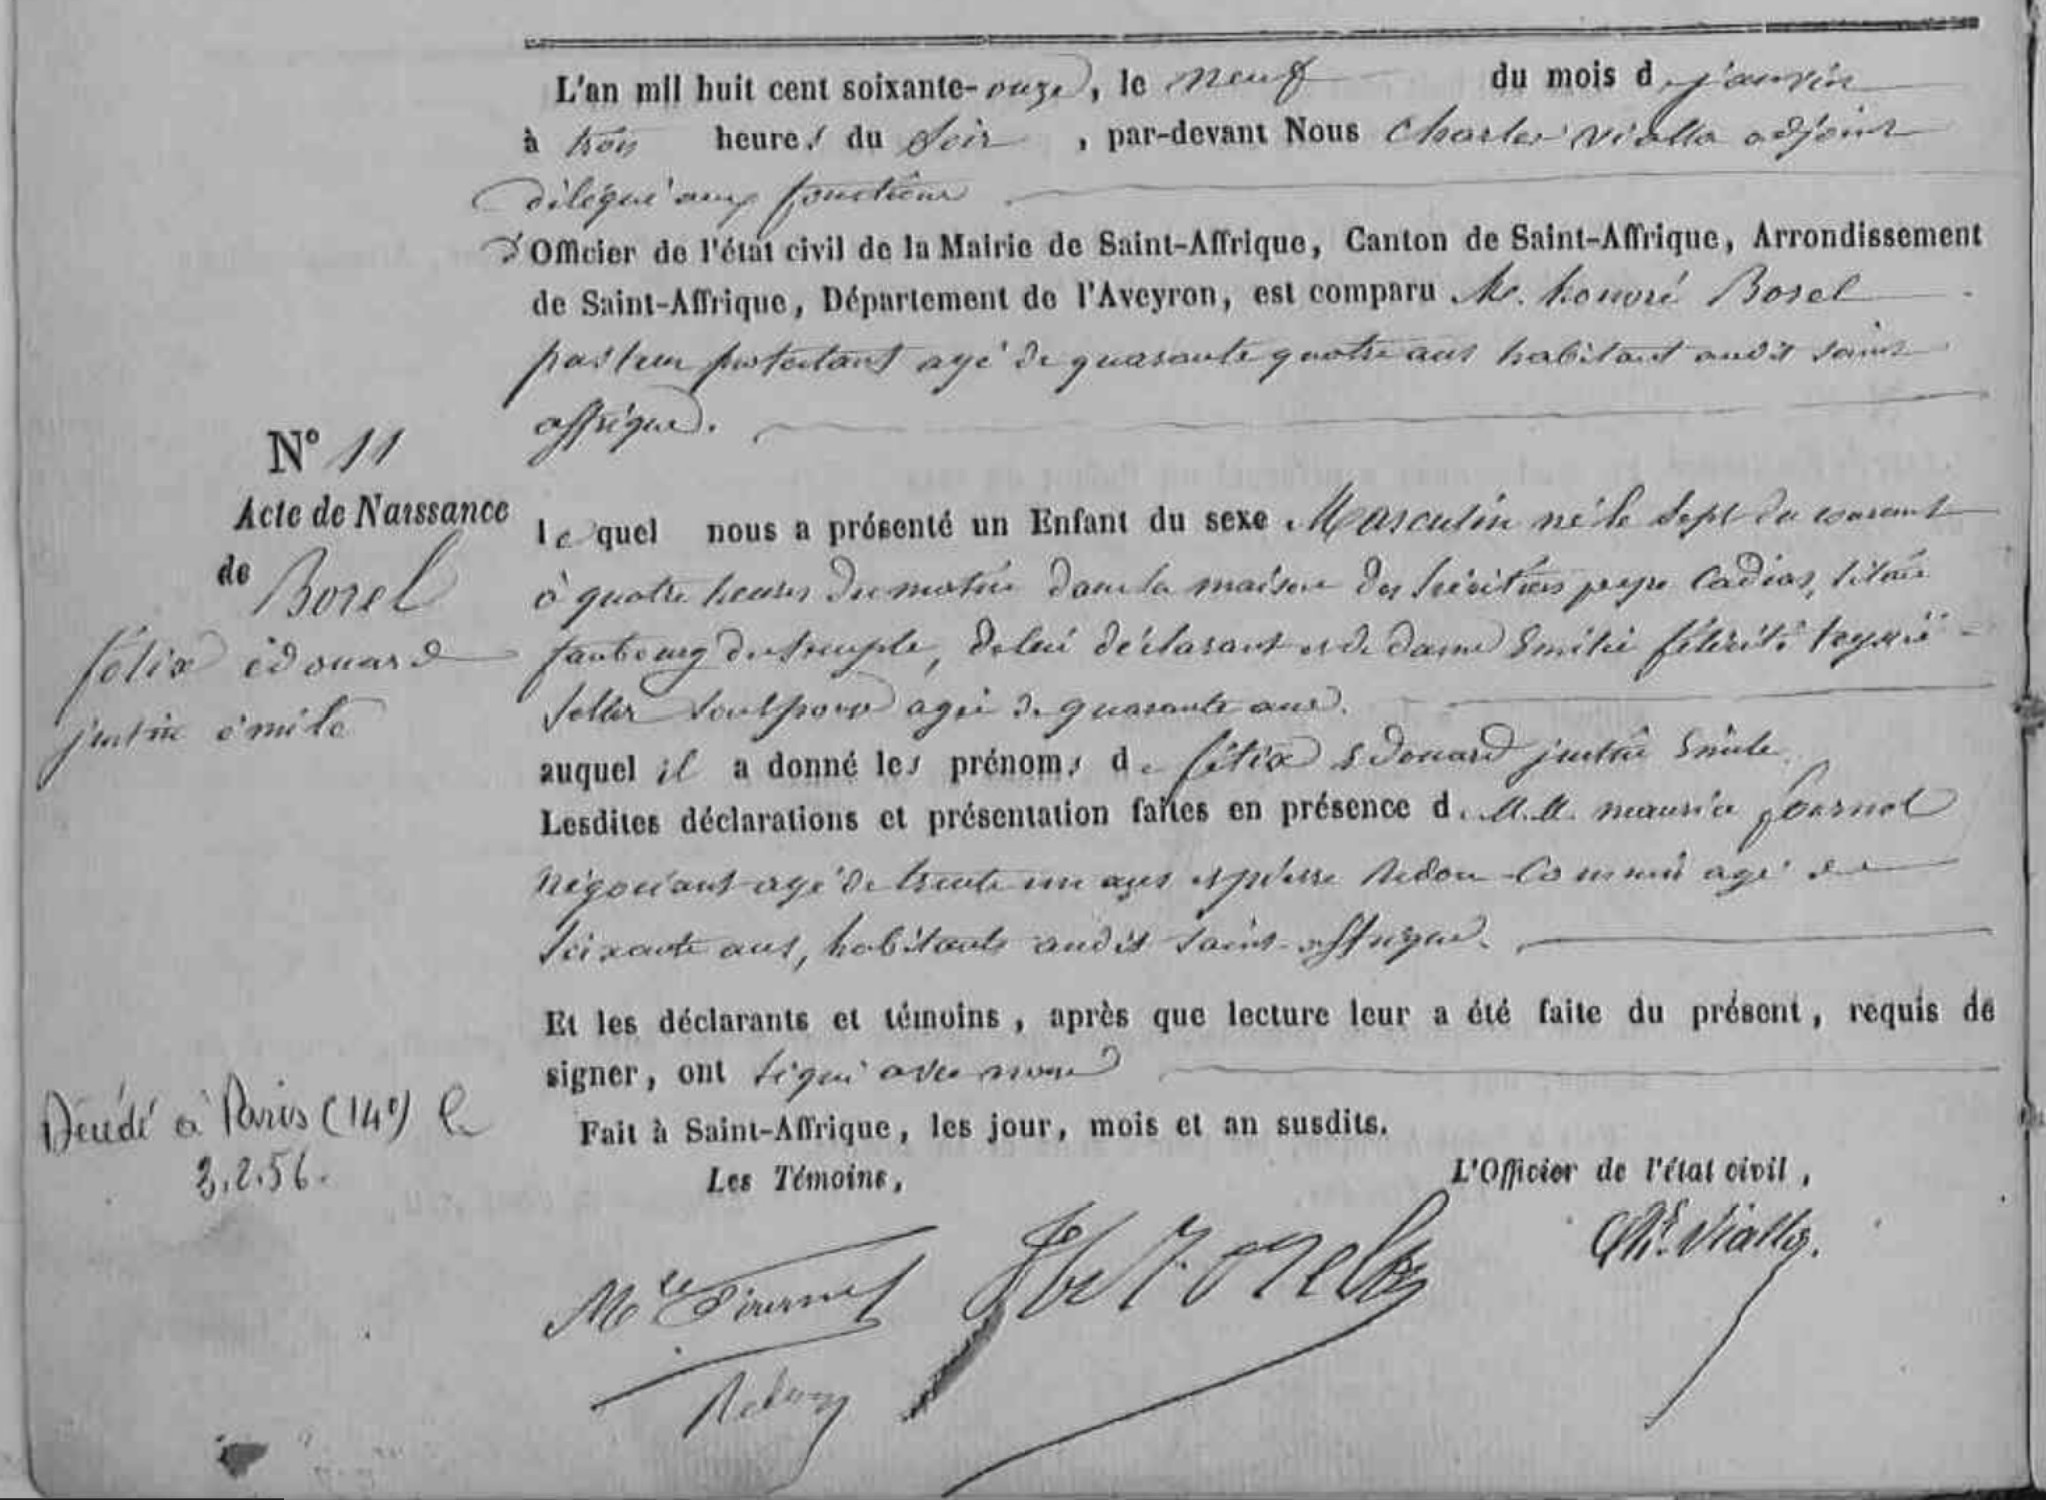 L'an mil huit cent soixante-onze, le neuf du mois de janvier
à trois heures du soir, par-devant Nous Charles Vialla adjoint
délégué aux fonctions
d'Officier de l'état civil de la Mairie de Saint-Affrique, Canton de Saint-Affrique, Arrondissement
de Saint-Affrique, Département de l'Aveyron, est comparu M. honoré Borel
pasteur protestant agé de quarante quatre ans habitant audit saint
affrique.
N° 11
Acte de Naissance
de Borel
félix édouard
justin émile
lequel nous a présenté un Enfant du sexe Masculin né le sept du courant
à quatre heures du matin dans la maison des héritiers Cadias, située
faubourg du temple, de lui déclarant et de dame Emilie félicité
agée de quarante ans.
auquel il a donné les prénoms de félix Edouard justin Emile.
Lesdites déclarations et présentation faites en présence de M.M. maurice fournol
négociant agé de trente un ans et pierre Redon Commis agé de
soixante ans, habitants audit saint-affrique.
Et les déclarants et témoins, après que lecture leur a été faite du présent, requis de
signer, ont signé avec nous
Fait à Saint-Affrique, les jour, mois et an susdits.
Les Témoins,
L'Officier de l'état civil,
Décédé à Paris (14e) le
3.2.56.
Mce Fournol
Hre Borel
Ch. Vialla.
Redon